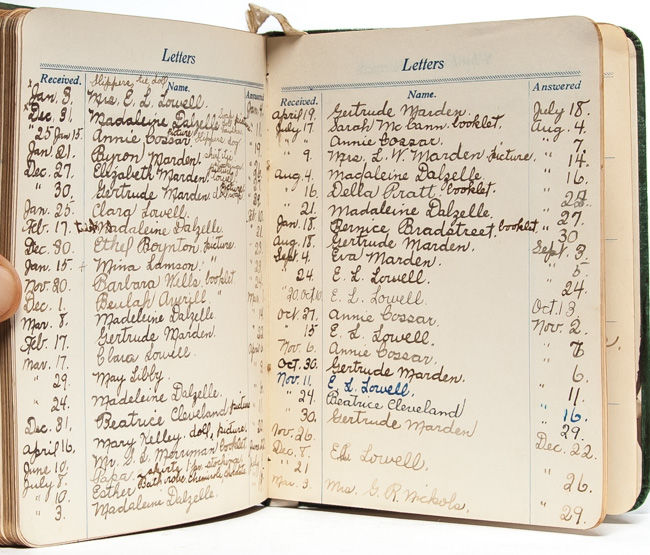 Letters
Received. Name. Answered
slippers tie doll
Jan. 3. Mrs. E. L. Lowell.
Dec. 31. Madaleine Dalzelle
"25 Jan 15. Annie Cossar. picture
Jan. 21. Byron Marden
Dec. 27. Elizabeth Marden.
" 30. Gertrude Marden
Jan. 25. Clara Lovell.
Feb. 17. Madaleine Dalzelle.
Dec. 30. Ethel Boynton. picture.
Jan. 15 + Mina Lamson. "
Nov. 30. Barbara Wills. booklet.
Dec. 1. Beulah Averill. "
Mar. 8. Madaleine Dalzelle
Feb. 17. Gertrude Marden.
Mar. 17. Clara Lovell.
" 29. May Libby.
" 24. Madeleine Dalzelle.
Dec. 31. Beatrice Cleveland. picture
April 16. Mary Kelley. doll, picture.
June 10. Mr. S. L. Merriman booklet
July 8. Papa. skirts 1 pr. stockings
" 10. Esther Bath robe Chemise
" 3. Madaleine Dalzelle.
Letters
Received. Name. Answered
April 19. Gertrude Marden. July 18.
July 17. Sarah McCann. booklet. Aug. 4.
" " Annie Cossar. " 7.
" 9. Mrs. L. W. Marden picture. " 14.
Aug. 4. Madaleine Dalzelle. " 16.
" 16. Della Pratt. booklet. " 23.
" 21. Madaleine Dalzelle. " 27.
Jan. 18. Bernice Bradstreet. booklet " 30
Aug. 18. Gertrude Marden. Sept. 3.
Sept. 4. Eva Marden. " 5.
" 24. E. L. Lowell. " 24.
" 20. Oct 10. E. L. Lowell. Oct. 13
Oct. 27. Annie Cossar. Nov. 2.
" 15 E. L. Lowell.
Nov. 6. Annie Cossar.
Oct. 30. Gertrude Marden. " 6.
Nov. 11. E. L. Lowell. " 11.
" 24. Beatrice Cleveland " 16.
" 30. Gertrude Marden " 29.
Nov. 26. Dec. 22.
Dec. 8. E. L. Lowell.
" 21 " 26.
Mar. 3. Mrs. G. R. Nickols. " 29.